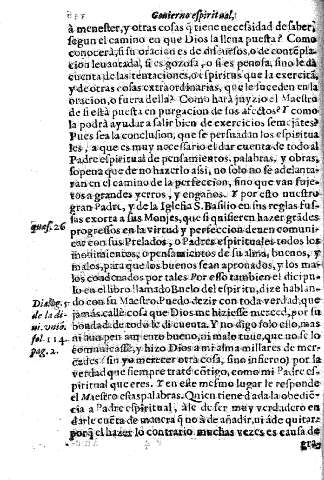 Gouierno espiritual,
à menester, y otras cosas q̃ tiene necessidad de saber,
segun el camino en que Dios la lleua puesta? Como
conocerà, si su oracion es de discursos, o de contẽpla
cion leuantada, si es gozosa, o si es penosa, sino le dà
cuenta de las tentaciones, o espiritus que la exercitã,
y de otras cosas extraordinarias, que le suceden en la
oracion, o fuera della? Como harà juyzio el Maestro
de si està puesta en purgacion de sus afectos? Y como
la podrà ayudar a salir bien de exercicios semejãtes?
Pues sea la conclusion, que se persuadan los espiritua
les, a que es muy necessario el dar cuenta de todo al
Padre espiritual de pensamientos, palabras, y obras,
sopena que de no hazerlo assi, no solo no se adelanta-
ràn en el camino de la perfeccion, sino que van suje-
tos a grandes yerros, y engaños. Y por esto nuestro
gran Padre, y de la Iglesia S. Basilio en sus reglas fus-
sas exorta a sus Monjes, que si quisieren hazer grãdes
ques. 26 progressos en la virtud y perfeccion deuen comuni-
car con sus Prelados, o Padres espirituales todos los
mouimientos, o pensamientos de su alma, buenos, y
malos, para que los buenos sean aprouados, y los ma-
los condenados por tales. Por esso tambien el dicipu-
lo en el libro llamado Buelo del espiritu, dize hablan-
Dialog. 5. do con su Maestro. Puedo dezir con toda verdad, que
de la di- jamàs callè cosa que Dios me hiziesse merced, por su
ui. vnio. bondad de todo le di cuenta. Y no digo solo ello, mas
fol. 114. ni aun pensamiento bueno, ni malo tuue, que no se lo
pag. 2. comunicasse, y hizo Dios a mi alma millares de mer-
cedes (sin yo merecer otra cosa, sino infierno) por la
verdad que siempre tratè cõtigo, como mi Padre es-
piritual que eres. Y en este mesmo lugar le responde
el Maestro estas palabras. Quien tiene dada la obediẽ
cia a Padre espiritual, à le de ser muy verdadero en
darle cuẽta de manera q̃ no à de añadir, ni à de quitar,
porq̃ el hazer lo contrario muchas vezes es causa de
gran